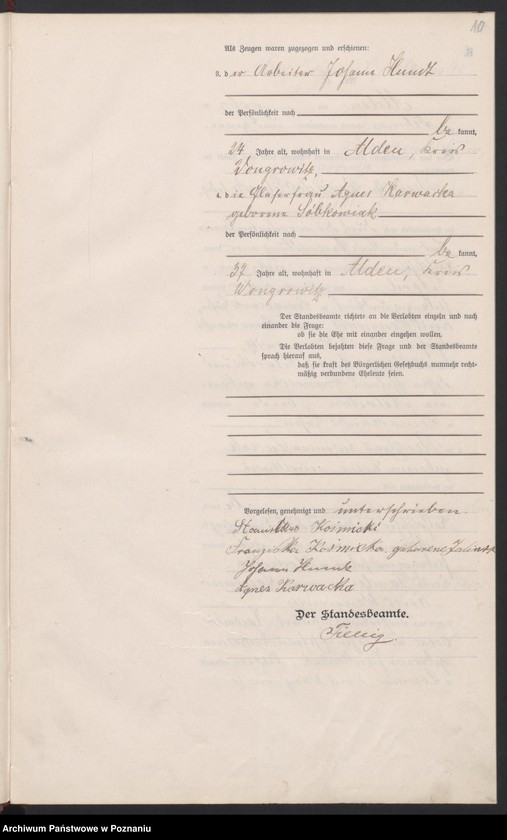 10
Als Zeugen waren zugezogen und erschienen:
3. der Arbeiter Johann Hundt
der Persönlichkeit nach
be kannt,
24 Jahre alt, wohnhaft in Alden, Kreis
Wongrowitz,
4. die Glaserfrau Agnes Karwacka
geborene Sobkowiak
der Persönlichkeit nach
be kannt,
37 Jahre alt, wohnhaft in Alden, Kreis
Wongrowitz
Der Standesbeamte richtete an die Verlobten einzeln und nach
einander die Frage:
ob sie die Ehe mit einander eingehen wollen.
Die Verlobten bejahten diese Frage und der Standesbeamte
sprach hierauf aus,
daß sie kraft des Bürgerlichen Gesetzbuchs nunmehr recht-
mäßig verbundene Eheleute seien.
Vorgelesen, genehmigt und unterschrieben
Stanislaus Kośmicki
Franziska Kośmicka, geborene
Johann Hundt
Agnes Karwacka
Der Standesbeamte.
Archiwum Państwowe w Poznaniu